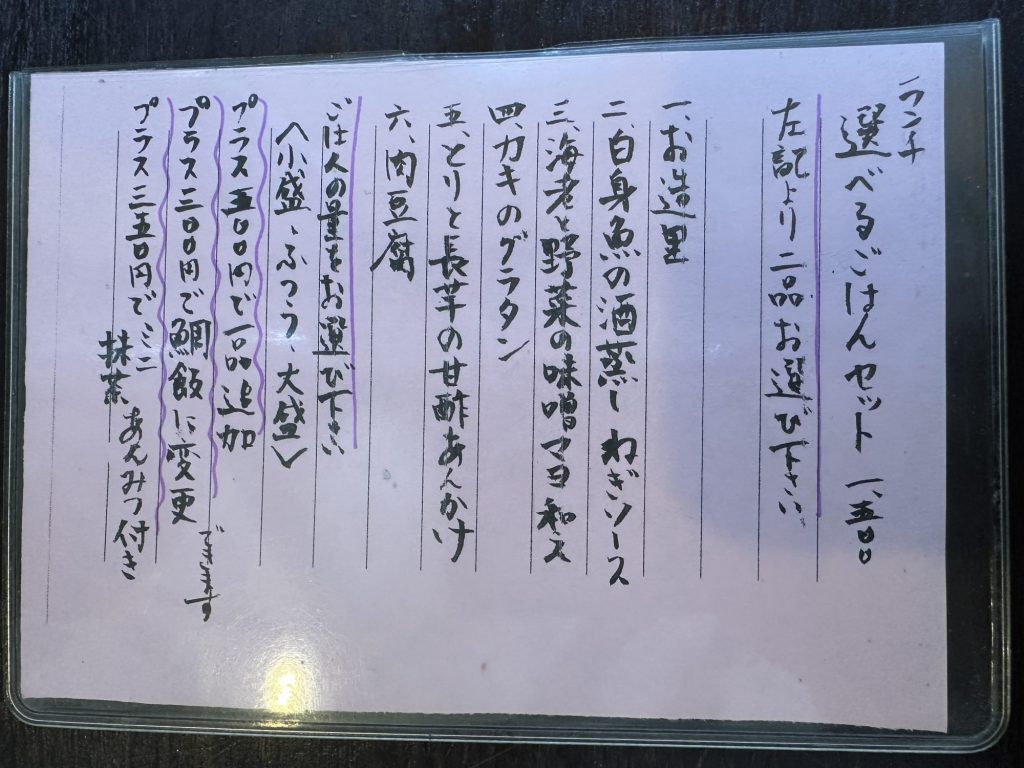 ランチ
選べるごはんセット 一、五〇〇
左記より二品お選び下さい
一、お造里
二、白身魚の酒蒸し ねぎソース
三、海老と野菜の味噌マヨ和え
四、カキのグラタン
五、とりと長芋の甘酢あんかけ
六、肉豆腐
ご仕人の量をお選び下さい
〈小盛、ふつう、大盛〉
プラス五〇〇円で一品追加
プラス三〇〇円で鯛飯に変更
できます
プラス三五〇円でミニ
抹茶あんみつ付き